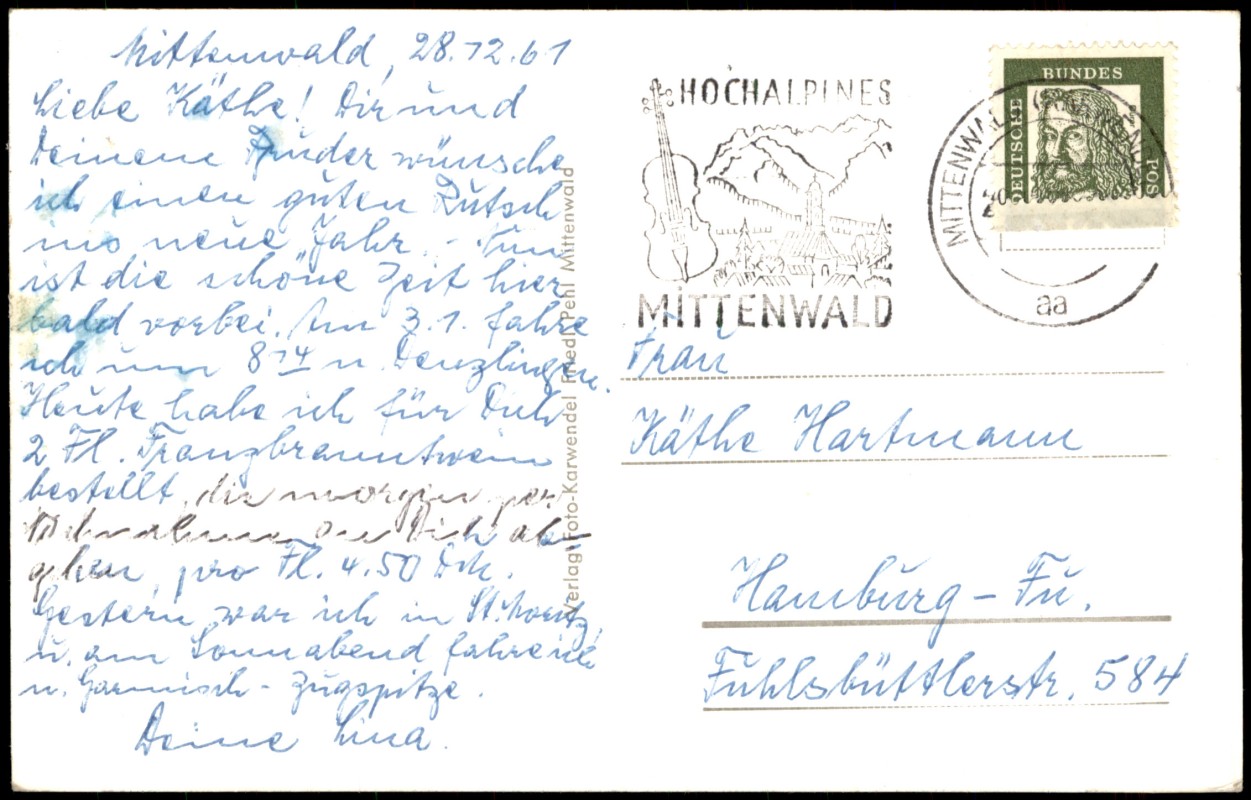 Mittenwald, 28.12.61
Liebe Käthe! Dir und
Deinem Bruder wünsche
ich einen guten Rutsch
ins neue Jahr. - Nun
ist die schöne Zeit hier
bald vorbei. Am 3.1. fahre
ich um 8 14 n. Denzlingen.
Heute habe ich für Dich
2 Fl. Franzbranntwein
bestellt, die morgen per
Nachnahme an Dich ab-
gehen, pro Fl. 4.50 Dm.
Gestern war ich in St. Moritz,
u. am Sonnabend fahre ich
n. Garmisch - Zugspitze.
Deine Lina.
Verlag Foto-Karwendel Friedl Pehl Mittenwald
HOCHALPINES
MITTENWALD
MITTENWALD
aa
BUNDES
DEUTSCHE
POS
Frau
Käthe Hartmann
Hamburg - Fu.
Fuhlsbüttlerstr. 584